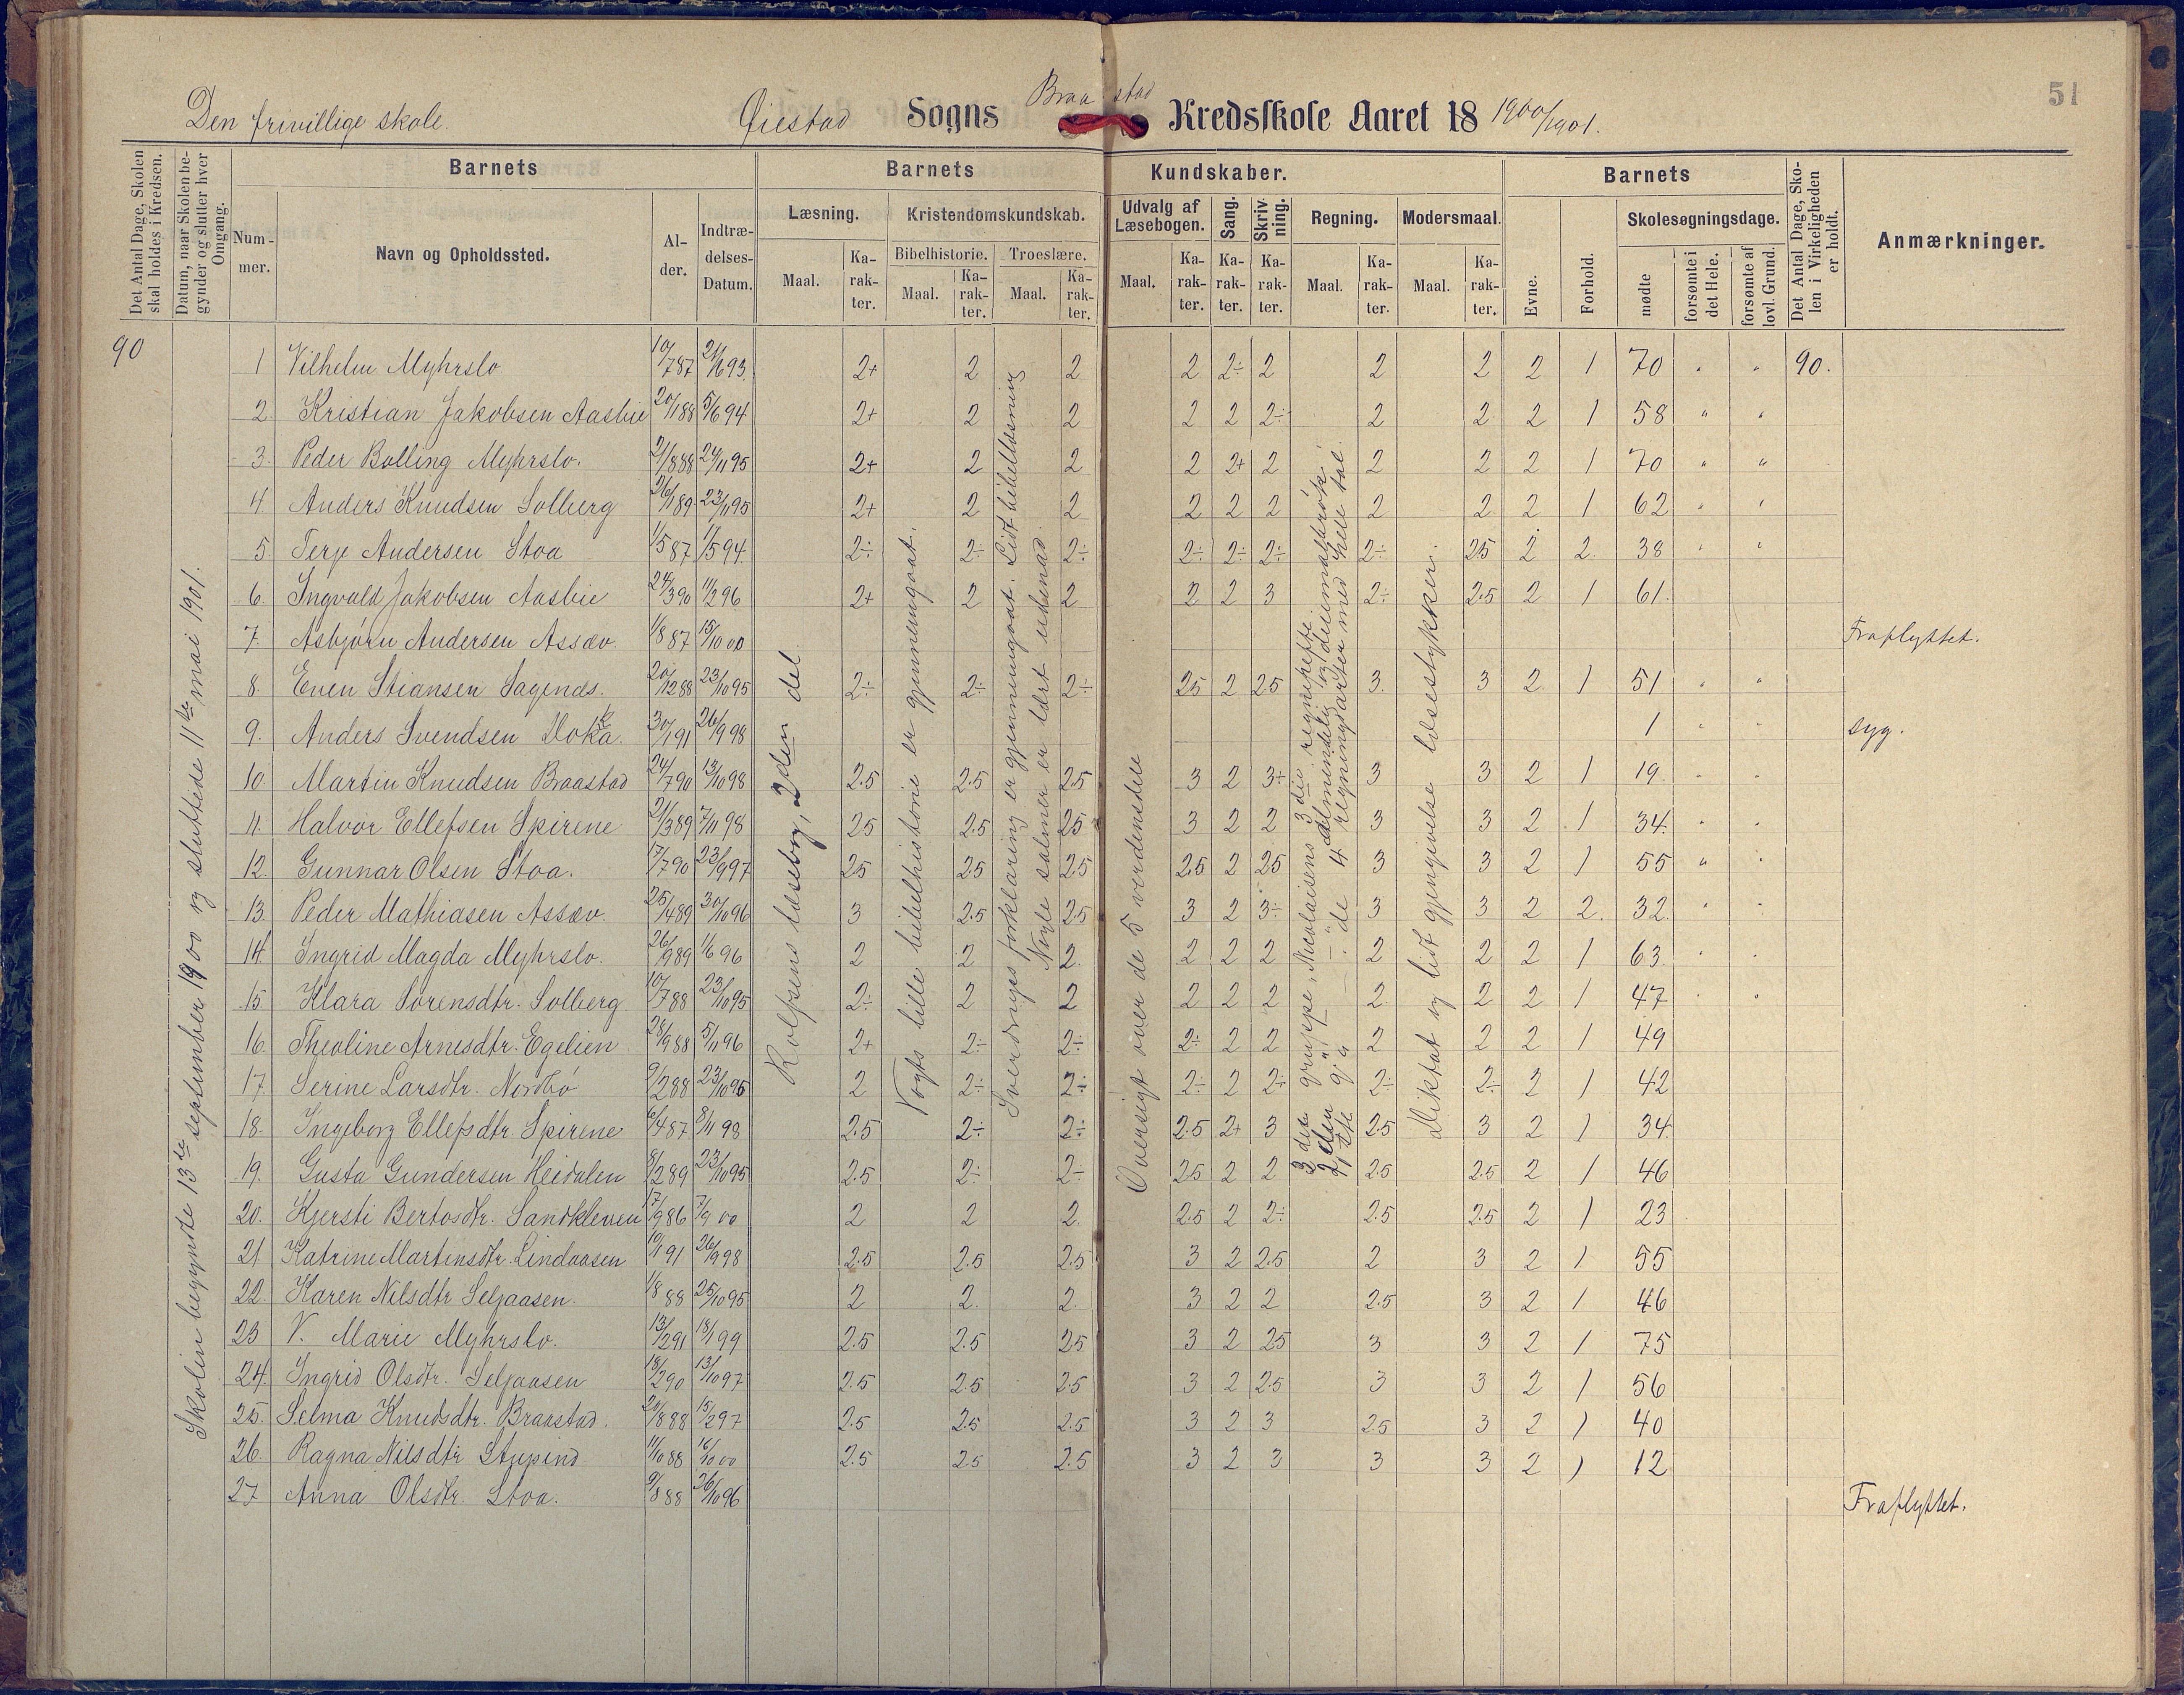 51
Den frivillige skole. Øiestad Sogns Braastad Kredsskole Aaret 18 1900/1901.
Det Antal Dage, Skolen skal holdes i Kredsen.
Datum, naar Skolen begynder og slutter hver Omgang.
Barnets
Nummer.
Navn og Opholdssted.
Alder.
Indtrædelses-Datum.
Barnets Kundskaber.
Læsning.
Maal. Karakter.
Kristendomskundskab.
Bibelhistorie. Troeslære.
Maal. Karakter. Maal. Karakter.
Udvalg af Læsebogen.
Maal. Karakter.
Sang. Karakter.
Skrivning. Karakter.
Regning.
Maal. Karakter.
Modersmaal.
Maal. Karakter.
Barnets
Evne. Forhold.
Skolesøgningsdage.
mødte
forsømte i det Hele.
forsømte af lovl. Grund.
Det Antal Dage, Skolen i Virkeligheden er holdt.
Anmærkninger.
90
Skolen begyndte 13de september 1900 og sluttede 11te mai 1901.
Rolfsens læsebog, 2den del
Vogts lille bibelhistorie er gjennemgaat.
Sverdrups forklaring er gjennemgaat. Lidt bibellæsning
Nogle salmer er lært udenad.
Oversigt over de 5 verdensdele
3die gruppe, Nicolaisens 3die regnehefte
2den g. " — " almindelig og decimalbrøk
1ste " — : de 4 regningsarter med hele tal.
Diktat og lidt gjengivelse læsestykker.
1 Vilhelm Myhrslo 10/787 21/693 2+ 2 2 2 2÷ 2 2 2 2 1 70 " " 90.
2. Kristian Jakobsen Aasbie 20/188 5/694 2+ 2 2 2 2 2÷ 2 2 2 1 58 " "
3. Peder Bolling Myhrslo. 21/888 24/1195 2+ 2 2 2 2+ 2 2 2 2 1 70 " "
4 Anders Knudsen Solberg 26/189 23/1195 2+ 2 2 2 2 2 2 2 2 1 62 " "
5. Terje Andersen Stoa 1/587 17/594 2÷ 2÷ 2÷ 2÷ 2÷ 2÷ 2÷ 2.5 2 2. 38 " "
6. Ingvald Jakobsen Aasbie 24/390 11/296 2+ 2 2 2 2 3 2÷ 2.5 2 1 61.
7. Asbjørn Andersen Assæv. 1/887 15/1000 Fraflyttet.
8. Even Stiansen Sagenes. 20/1288 23/1095 2÷ 2÷ 2÷ 2.5 2 2.5 3. 3 2 1 51 " "
9. Anders Svendsen Dokka. 30/191 26/998 1 " " syg.
10. Martin Knudsen Braastad 24/790 13/1098 2.5 2.5 2.5 3 2 3÷ 3 3 2 1 19. " "
11. Halvor Ellefsen Spirene 21/389 7/1198 2.5 2.5 2.5 3 2 2 3 3 2 1 34. " "
12. Gunnar Olsen Stoa. 17/790 23/997 2.5 2.5 2.5 2.5 2 2.5 3 3 2 1 55 " "
13. Peder Mathiasen Assæv. 25/489 30/1096 3 2.5 2.5 3 2 3÷ 3 3 2 2. 32. " "
14. Ingrid Magda Myhrslo. 26/989 1/696 2 2 2. 2 2 2 2 2 2 1 63. " "
15 Klara Sørensdtr. Solberg 10/788 23/1095 2÷ 2 2 2 2 2 2 2 2 1 47 " "
16. Theoline Arnesdtr. Egelien 28/988 5/1196 2+ 2÷ 2÷ 2÷ 2 2 2 2 2 1 49
17. Serine Larsdtr. Nordbø 9/288 23/1095 2 2÷ 2÷ 2÷ 2 2÷ 2÷ 2÷ 2 1 42
18. Ingeborg Ellefsdtr. Spirene 6/487 8/1198 2.5 2÷ 2÷ 2.5 2+ 3 2.5 3 2 1 34.
19. Gusta Gundersen Heidalen 8/289 23/1095 2.5 2÷ 2÷ 2.5 2 2 2.5 2.5 2 1 46
20. Kjersti Bertosdtr. Sandkleven 17/986 7/900 2 2 2. 2.5 2 2÷ 2.5 2.5 2 1 23
21. Katrine Martinsdtr. Lindaasen 10/191 26/998 2.5 2.5 2.5 3 2 2.5 2 3 2 1 55
22. Karen Nilsdtr Seljaasen. 1/888 25/1095 2 2. 2. 3 2 2 2.5 3 2 1 46
23 V. Marie Myhrslo. 13/291 18/199 2.5 2.5 2.5 3 2 2.5 3 3 2 1 75
24. Ingrid Olsdtr. Seljaasen 18/290 13/1097 2.5 2.5 2.5 3 2 2.5 3 3 2 1 56
25. Selma Knudsdtr. Braastad. 20/888 15/297 2.5 2.5 2.5 3 2 3 2.5 3 2 1 40
26. Ragna Nilsdtr Stupend 11/1088 16/1000 2.5 2.5 2.5 3 2 3 3 3 2 1 12
27 Anna Olsdtr. Stoa. 9/888 26/1096 Fraflyttet.